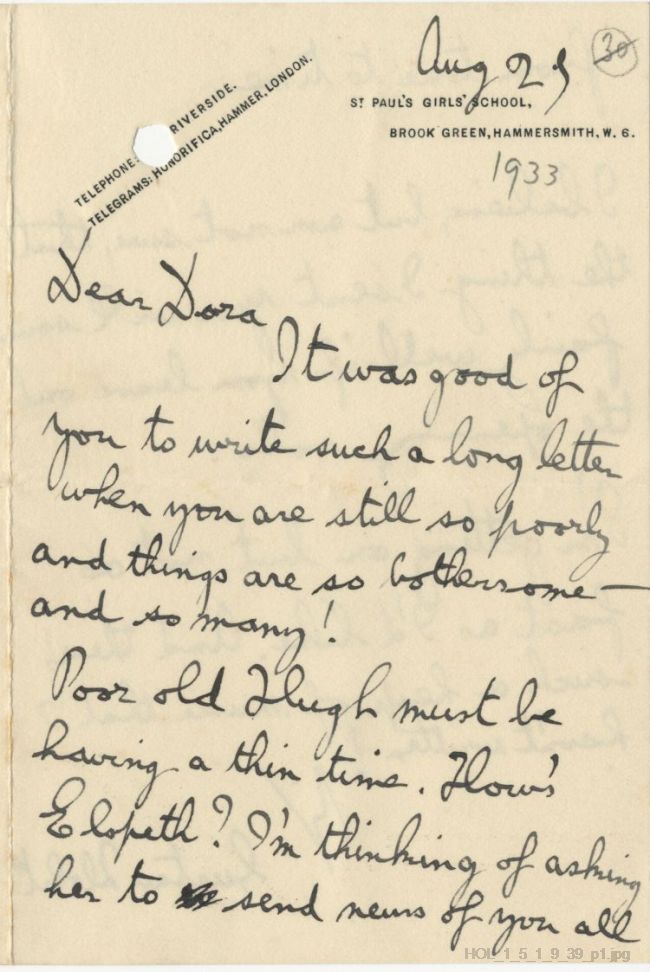 30
Aug 25
ST PAUL'S GIRLS' SCHOOL,
BROOK GREEN, HAMMERSMITH, W. 6.
1933
TELEPHONE: RIVERSIDE.
TELEGRAMS: HONORIFICA, HAMMER, LONDON.
Dear Dora
It was good of
you to write such a long letter
when you are still so poorly
and things are so bothersome —
and so many!
Poor old Hugh must be
having a thin time. How's
Elspeth? I'm thinking of asking
her to send news of you all
HOL_1_5_1_9_39_p1.jpg